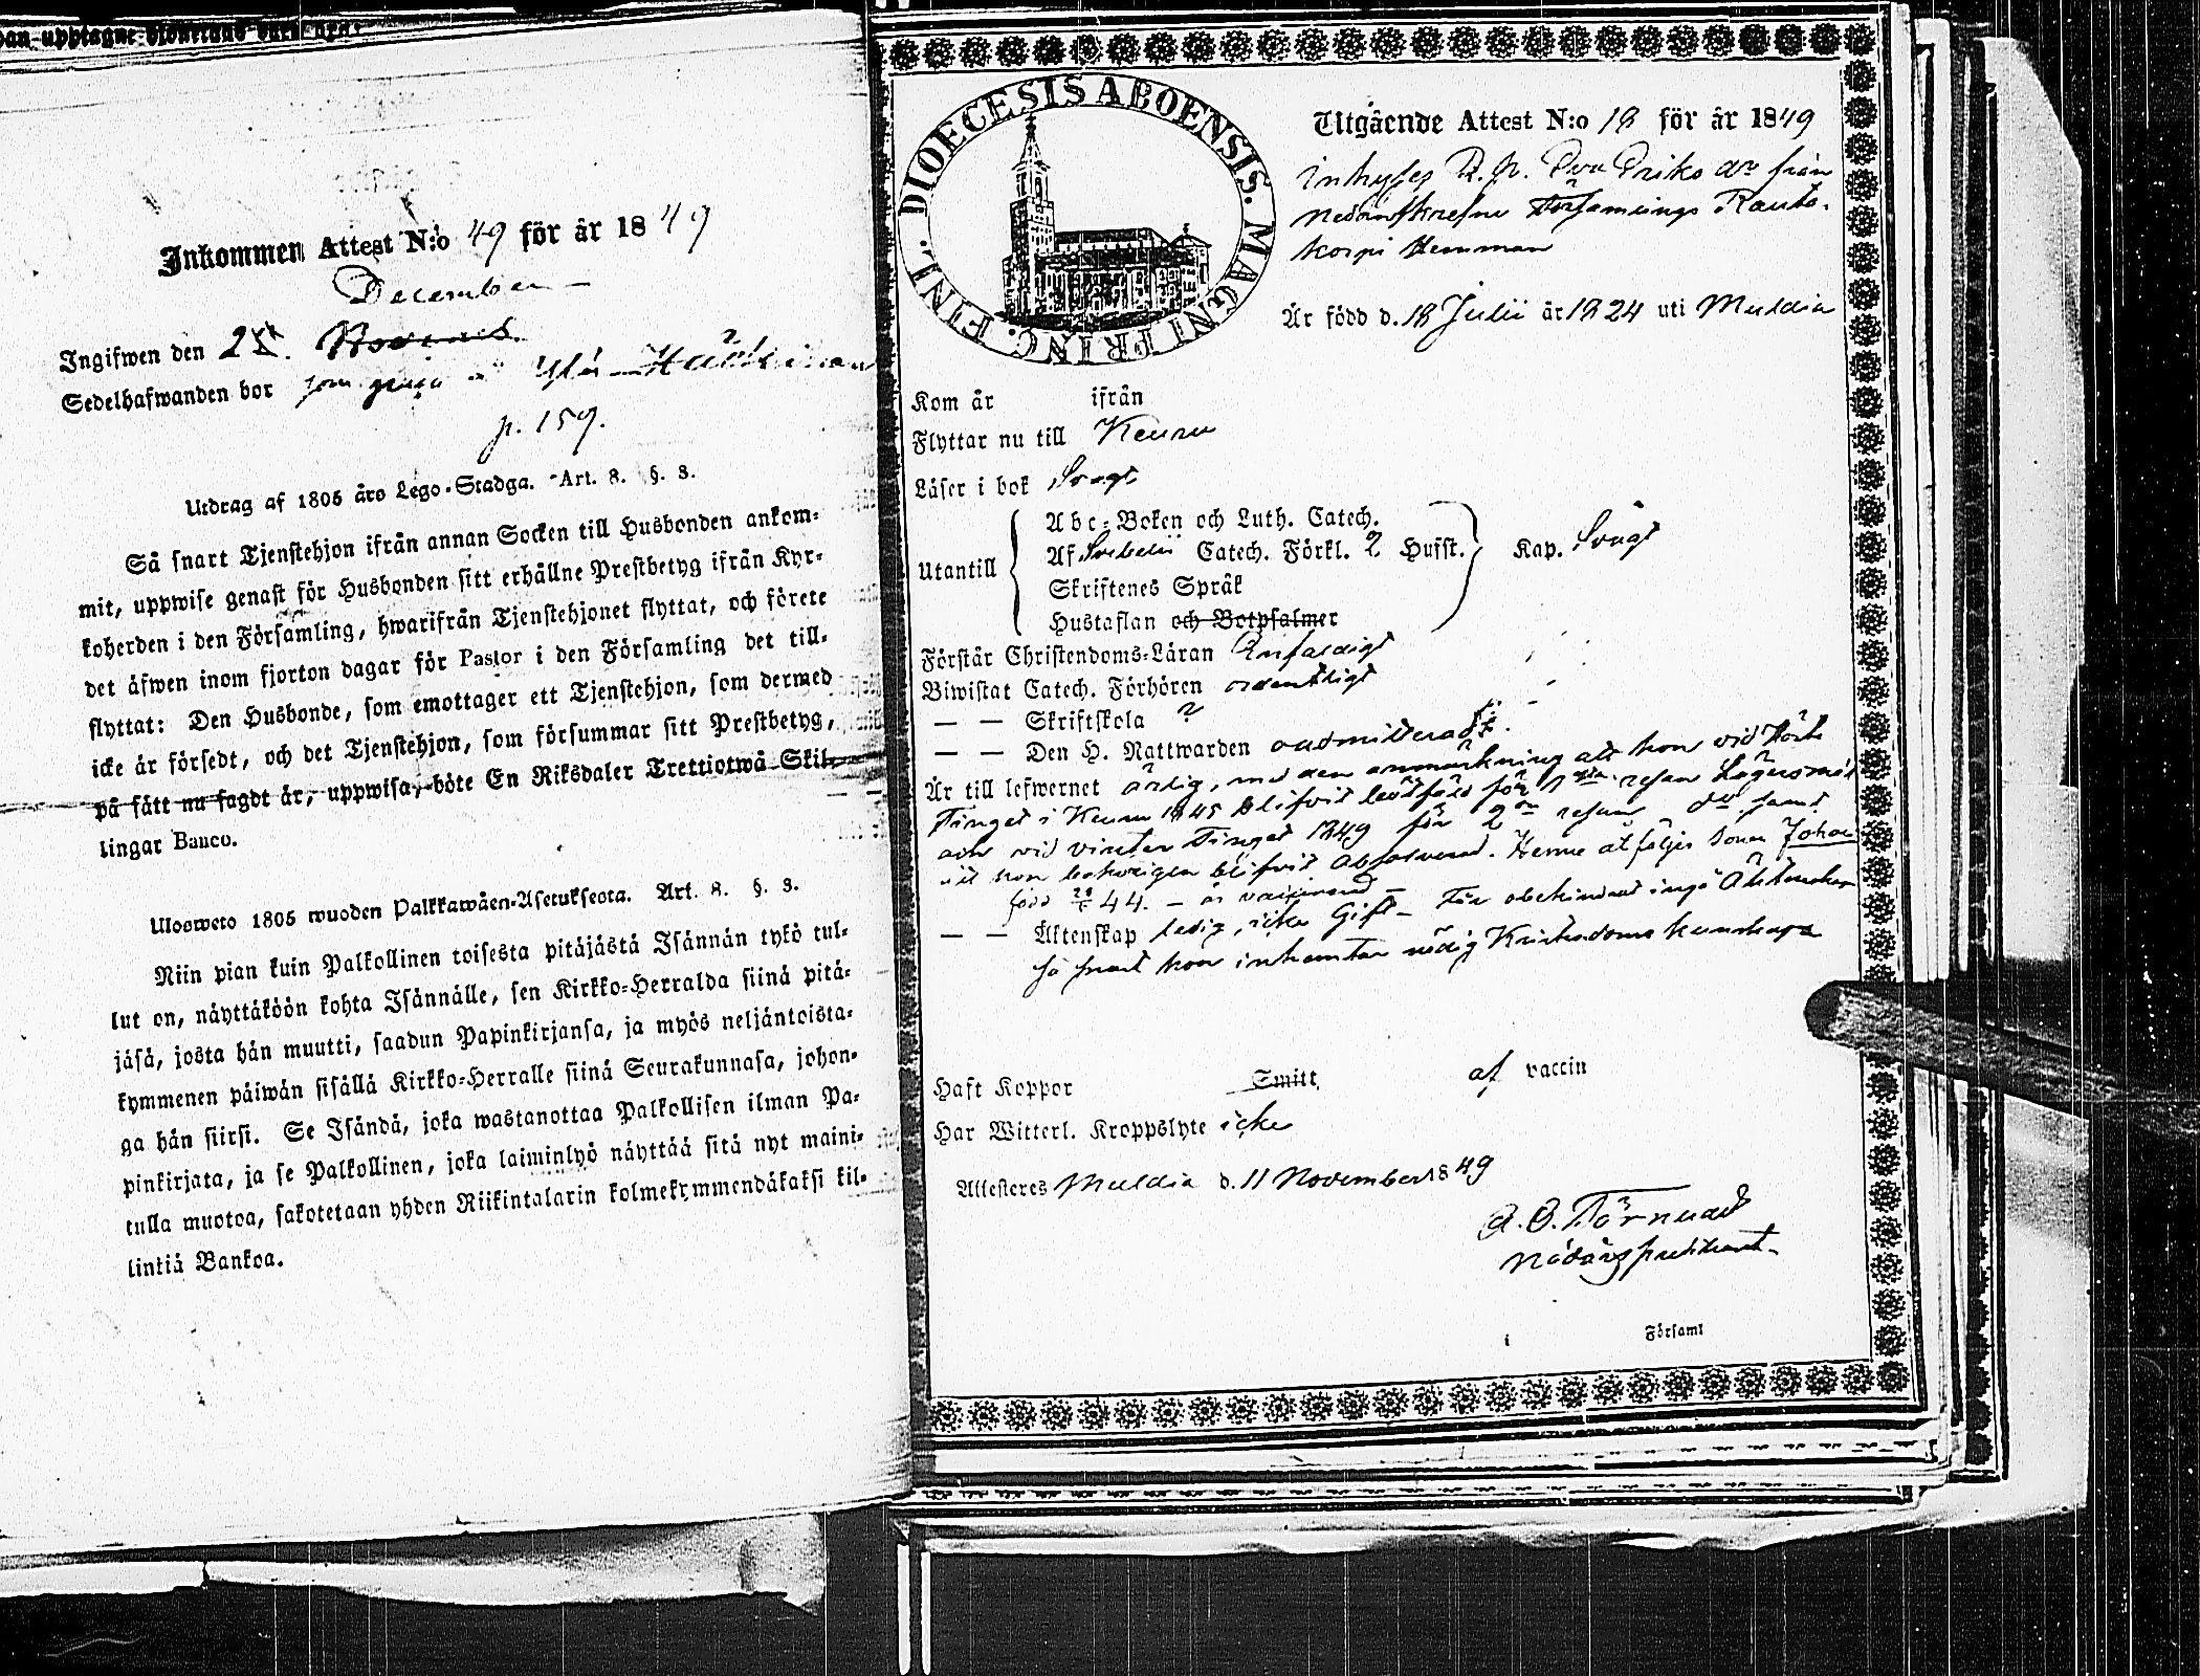 Inkommen Attest N:o 49 för år 1849
December
Ingifwen den 2 Novemb.
Sedelhafwanden bor som piga
p. 159.
Utdrag af 1805 års Lego-Stadga. Art. 8. §. 3.
Så snart Tjenstehjon ifrån annan Socken till Husbonden ankom-
mit, uppwise genast för Husbonden sitt erhållne Prestbetyg ifrån Kyr-
koherden i den Församling, hwarifrån Tjenstehjonet flyttat, och förete
det äfwen inom fjorton dagar för Pastor i den Församling det till-
flyttat: Den Husbonde, som emottager ett Tjenstehjon, som dermed
icke är försedt, och det Tjenstehjon, som försummar sitt Prestbetyg,
på sätt nu sagdt är, uppwisa, böte En Riksdaler Trettiotwå Skil-
lingar Banco.
Ulosweto 1805 wuoden Palkkawäen-Asetuksesta. Art. 8. §. 3.
Niin pian kuin Palkollinen toisesta pitäjästä Isännän tykö tul-
lut on, näyttäköön kohta Isännälle, sen Kirkko-Herralda siinä pitä-
jäsä, josta hän muutti, saadun Papinkirjansa, ja myös neljäntoista-
kymmenen päiwän sisällä Kirkko-Herralle siinä Seurakunnasa, johon-
ga hän siirsi. Se Isändä, joka wastanottaa Palkollisen ilman Pa-
pinkirjata, ja se Palkollinen, joka laiminlyö näyttää sitä nyt maini-
tulla muotoa, sakotetaan yhden Riikintalarin kolmekymmendäkaksi kil-
lintiä Bankoa.
DIOECESIS ABOENSIS. MAGNI PRINC. FINL.
Utgående Attest N:o 18 för år 1849
Inhyses Q. P. Eva Eriks dr från
nedanskrefne Församlings Rauta-
korpi Hemman
Är född d. 18 Julii år 1824 uti Muldia
Kom år ifrån
Flyttar nu till Keuru
Läser i bok Svagt
Utantill
Abc-Boken och Luth. Catech.
Af Svebelii Catech. Förkl. 2 Husst. Kap. Svagt
Skriftenes Språk
Hustaflan och Botpsalmer
Förstår Christendoms-Läran Enfaldigt
Biwistat Catech. Förhören ordentligt
— — Skriftskola ?
— — Den H. Nattwarden oadmitterad
Är till lefwernet ärlig, med den anmärkning att hon vid Höste
Tinget i Keuru 1845 blifvit sakfäld för 1sta resan Lägersmål
och vid vinter Tinget 1849 för 2 resan do samt
att hon behörigen blifvit absolverad. Henne åtföljer sonen Johan
född 44. — är vaccinerad —
— — Äktenskap ledig, icke Gift — Får obehindrad ingå Äktenskap
så snart hon inhemtar nödig Kristendoms kunskap
Haft Koppor Smitt af vaccin
Har Witterl. Kroppslyte icke
Attesteres Muldia d. 11 November 1849
A. O. Törnudd
Nådårspredikant.
i Församl